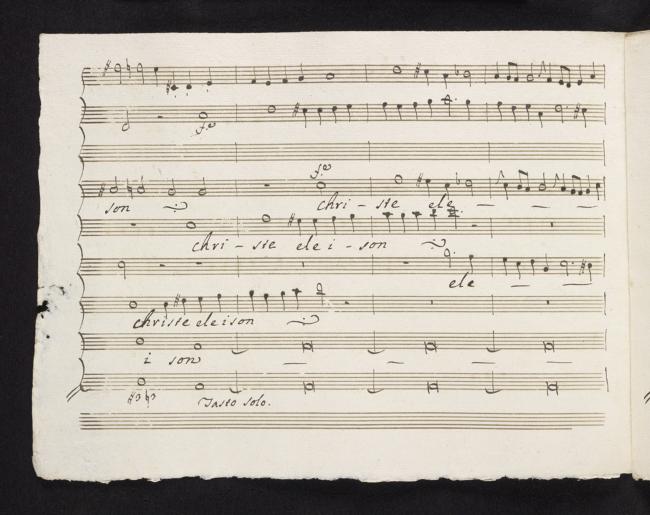 fe
fe
son chri - ste ele - - -
chri - ste ele i - son
ele - -
christe eleison
i son - - -
Tasto solo.